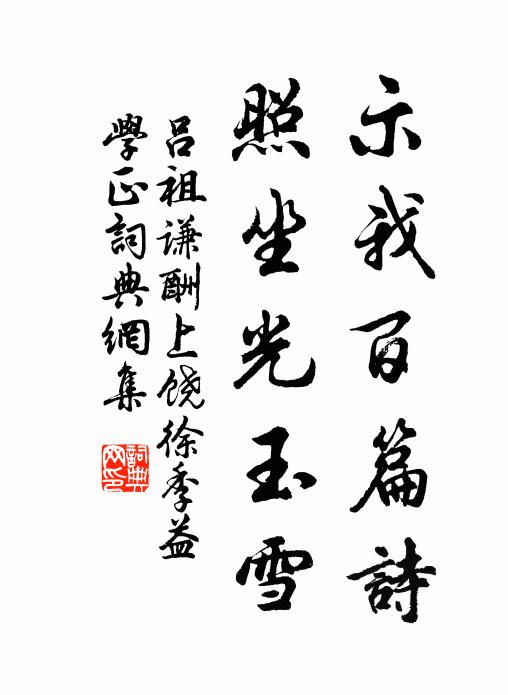 示我百篇詩
照坐光玉雪
吕祖谦酬上饶徐季益
學正詞典網集
詞典
网印